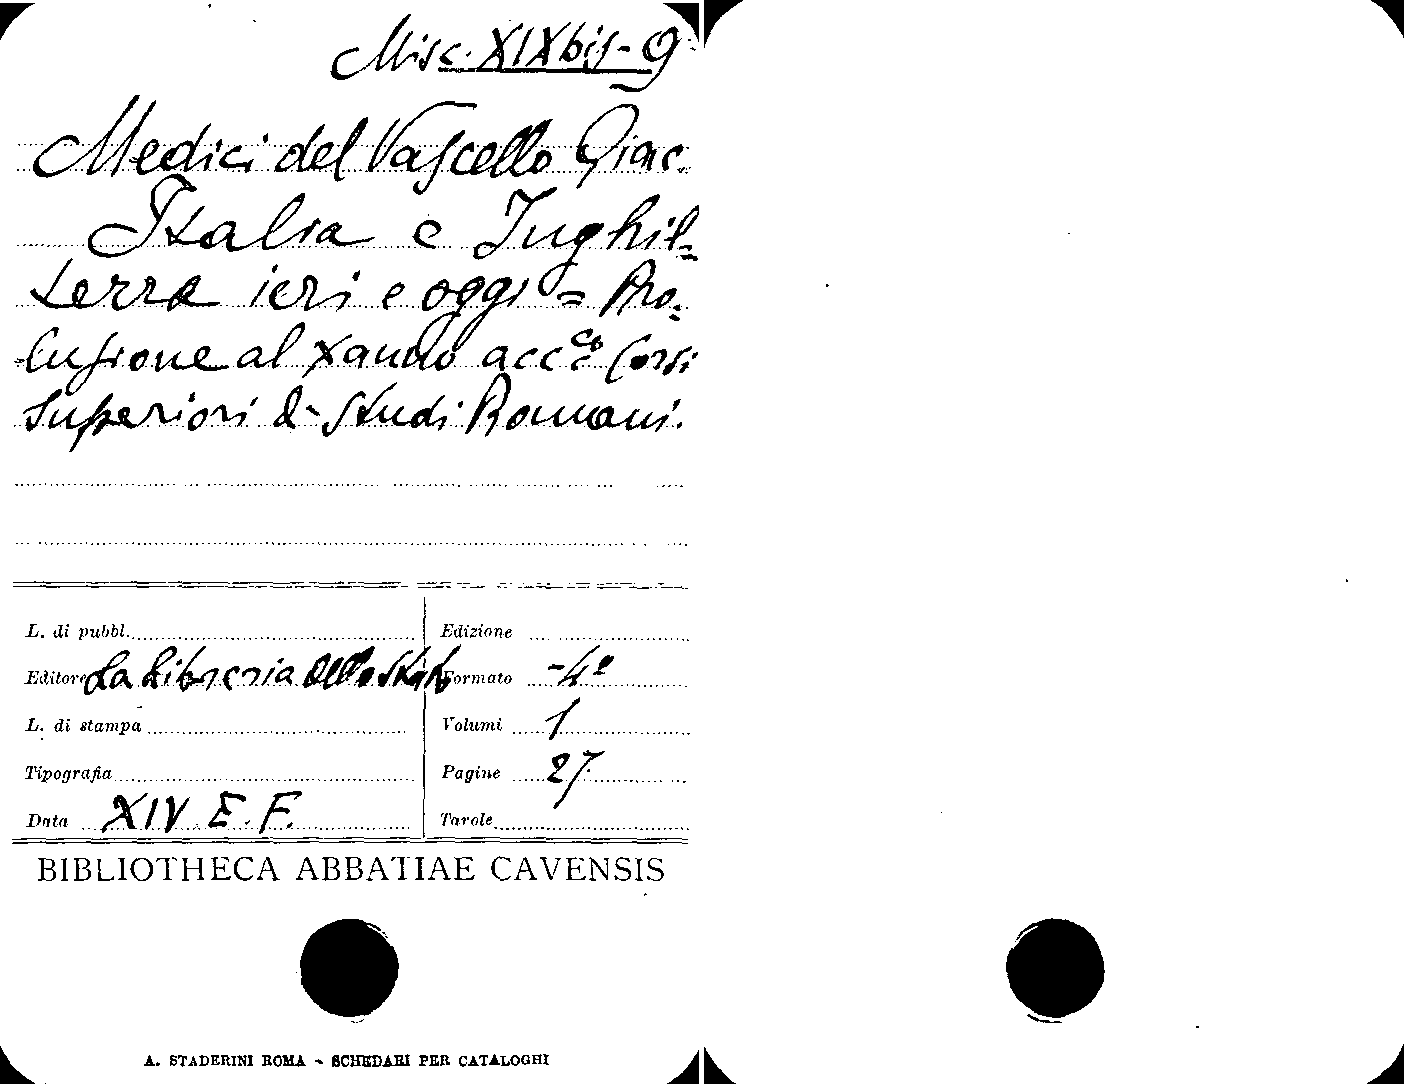 Misc. XIXbis-9
Medici del Vascello Giac.
Italia e Inghil-
terra ieri e oggi = Pro-
lusione al X anno acc.co Corsi
Superiori di Studi Romani.
L. di pubbl.
Edizione
Editore La Libreria dello Stato
Formato -4º
L. di stampa
Volumi 1
Tipografia
Pagine 27
Data XIV E.F.
Tavole
BIBLIOTHECA ABBATIAE CAVENSIS
A. STADERINI ROMA - SCHEDARI PER CATALOGHI